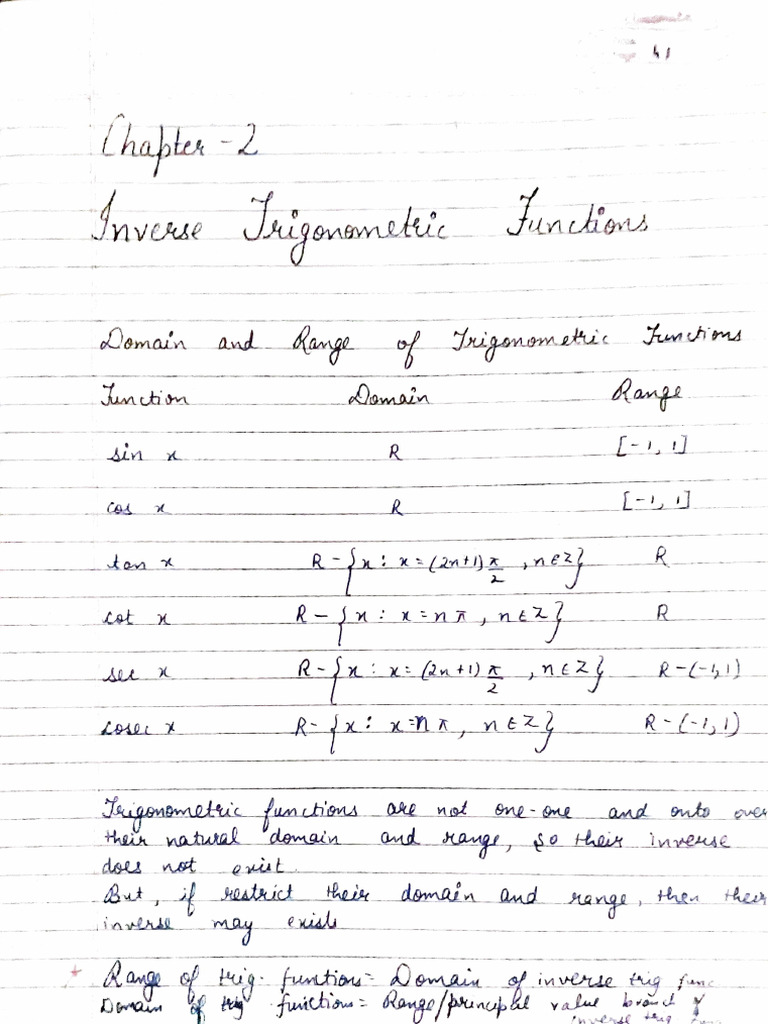 41
Chapter - 2
Inverse Trigonometric Functions
Domain and Range of Trigonometric Functions
Function Domain Range
sin x R [-1, 1]
cos x R [-1, 1]
tan x R - {x : x = (2n+1) π/2 , n ∈ Z} R
cot x R - {x : x = n π , n ∈ Z} R
sec x R - {x : x = (2n+1) π/2 , n ∈ Z} R - (-1, 1)
cosec x R - {x : x = n π , n ∈ Z} R - (-1, 1)
Trigonometric functions are not one-one and onto over
their natural domain and range, so their inverse
does not exist.
But, if restrict their domain and range, then their
inverse may exists
* Range of trig. funtions = Domain of inverse trig func
Domain of trig functions = Range/principal value branch of
inverse trig func